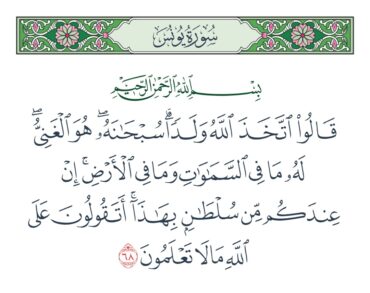 سُورَةُ يُونُسَ
بِسْمِ ٱللَّهِ ٱلرَّحْمَٰنِ ٱلرَّحِيمِ
قَالُوا۟ ٱتَّخَذَ ٱللَّهُ وَلَدًۭا ۗ سُبْحَٰنَهُۥ ۖ هُوَ ٱلْغَنِىُّ ۖ
لَهُۥ مَا فِى ٱلسَّمَٰوَٰتِ وَمَا فِى ٱلْأَرْضِ ۚ إِنْ
عِندَكُم مِّن سُلْطَٰنٍۭ بِهَٰذَآ ۚ أَتَقُولُونَ عَلَى
ٱللَّهِ مَا لَا تَعْلَمُونَ ٦٨